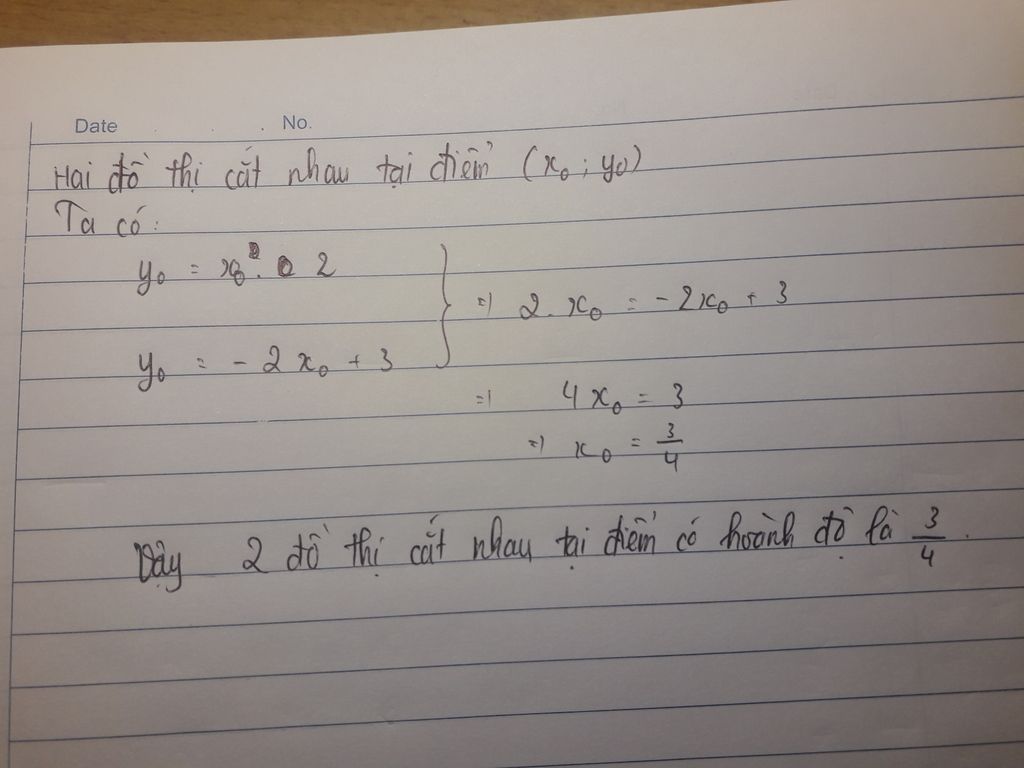 Date No.
Hai đồ thị cắt nhau tại điểm (x₀ ; y₀)
Ta có:
y₀ = x₀ . 2
y₀ = - 2 x₀ + 3
=) 2 . x₀ = - 2x₀ + 3
=) 4x₀ = 3
=) x₀ = 3/4
Vậy 2 đồ thị cắt nhau tại điểm có hoành độ là 3/4 .